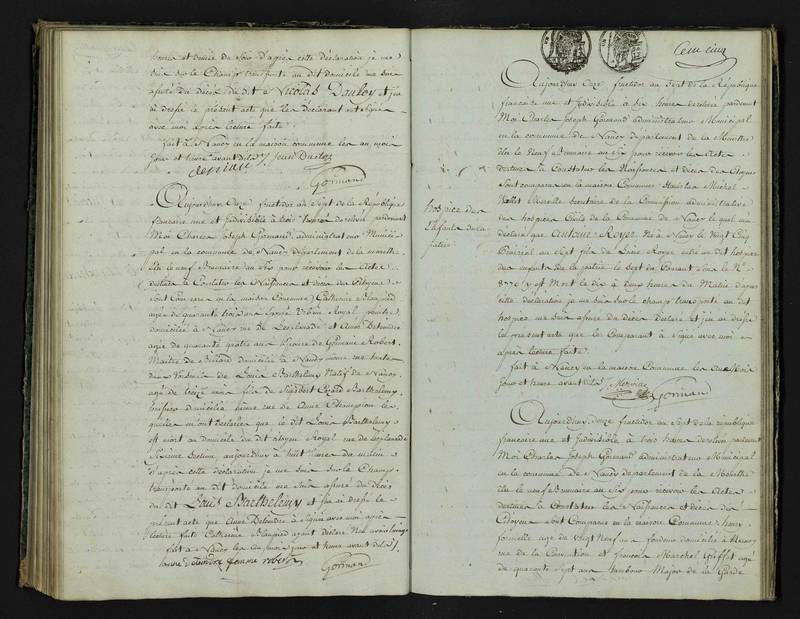 heures et demie du Soir d'après cette déclaration je me
Suis sur le Champ transporté au dit domicile me suis
assuré du décès du dit Nicolas Dauloy et j'ai
dressé le présent acte que les déclarant ont signé
avec moi après lecture faite
fait à Nancy en la maison commune les an mois
jour et heure avant dits
Gormand
Aujourdhuy fructidor an Sept de la République
francaise une et indivisible à trois heures de relevée pardevant
Moi Charles Joseph Gormand administrateur Munici
pal en la commune de Nancy département de la meurthe
élu le neuf Brumaire an Six pour recevoir les Actes
destinés à Constater les Naissances et décès des Citoyens
Sont Comparus en la maison Commune Catherine
agée de quarante trois ans Epouse Royal
domiciliée à Nancy rue de et Anne Detendre
agée de quarante quatre ans Epouse de Germain Robert
Maitre de Billard domicilié à Nancy même rue
de Louis Barthelemy Natif de Nancy
agé de treize mois fils de Barthelemy
domicilié à Nancy rue de Anne Champion les
quelles m'ont déclaré que le dit Louis Barthelemy
est mort au domicile du dit citoyen Royal rue de
Sixieme Section aujourdhuy à huit heures du matin
d'après cette déclaration je me Suis Sur le Champ
transporté au dit domicile me Suis assuré du Décès
du dit Louis Barthélémy et j'ai dressé le
présent acte que Anne Detendre a Signé avec moi après
lecture faite Catherine ayant déclaré
fait à Nancy les an mois jour et heure avant dits
femme robert
Gormand
Cent cinq
Aujourdhuy Onze fructidor an Sept de la République
francaise une et indivisible à Six heures de relevée pardevant
Moi Charles Joseph Gormand administrateur Municipal
en la commune de Nancy département de la Meurthe
élu le Neuf Brumaire an Six pour recevoir les Actes
destinés à Constater les Naissances et décès des Citoyens
Sont comparus en la maison Commune Stanislas Michel
Secretaire de la Commission administrative
des hospices Civils de la Commune de Nancy lequel m'a
déclaré que Antoine Royer Né à Nancy le Vingt Cinq
Prairial an Sept fils de Royer entré au dit hospice
des enfants de la patrie le Sept du Courant Sous le No
8770 y est Mort le dix à deux heures du Matin d'après
cette déclaration je me Suis Sur le champ transporté au dit
hospice me Suis assuré du décès Déclaré et j'ai dressé
le présent acte que le Comparant à Signé avec moi
après lecture faite
fait à Nancy en la maison Commune les an mois
jour et heure avant dits
Gormand
hospice des
Enfants de la
patrie
Aujourdhuy douze fructidor an Sept de la République
francaise une et indivisible à trois heures de relevée pardevant
Moi Charles Joseph Gormand administrateur Municipal
en la commune de Nancy département de la Meurthe
élu le neuf Brumaire an Six pour recevoir les Actes
destinés à Constater les Naissances et décès des
Citoyens Sont Comparus en la maison Commune
agé de Vingt Neuf ans domicilié à Nancy
rue de la Convention et françois Marchal agé
de quarante Sept ans tambour Major de la Garde